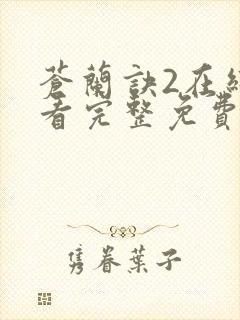 蒼蘭訣2在
看完整免費
隻眷葉子